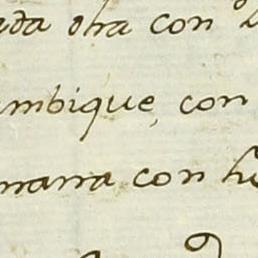 ada otra con
mbique, con
mana con